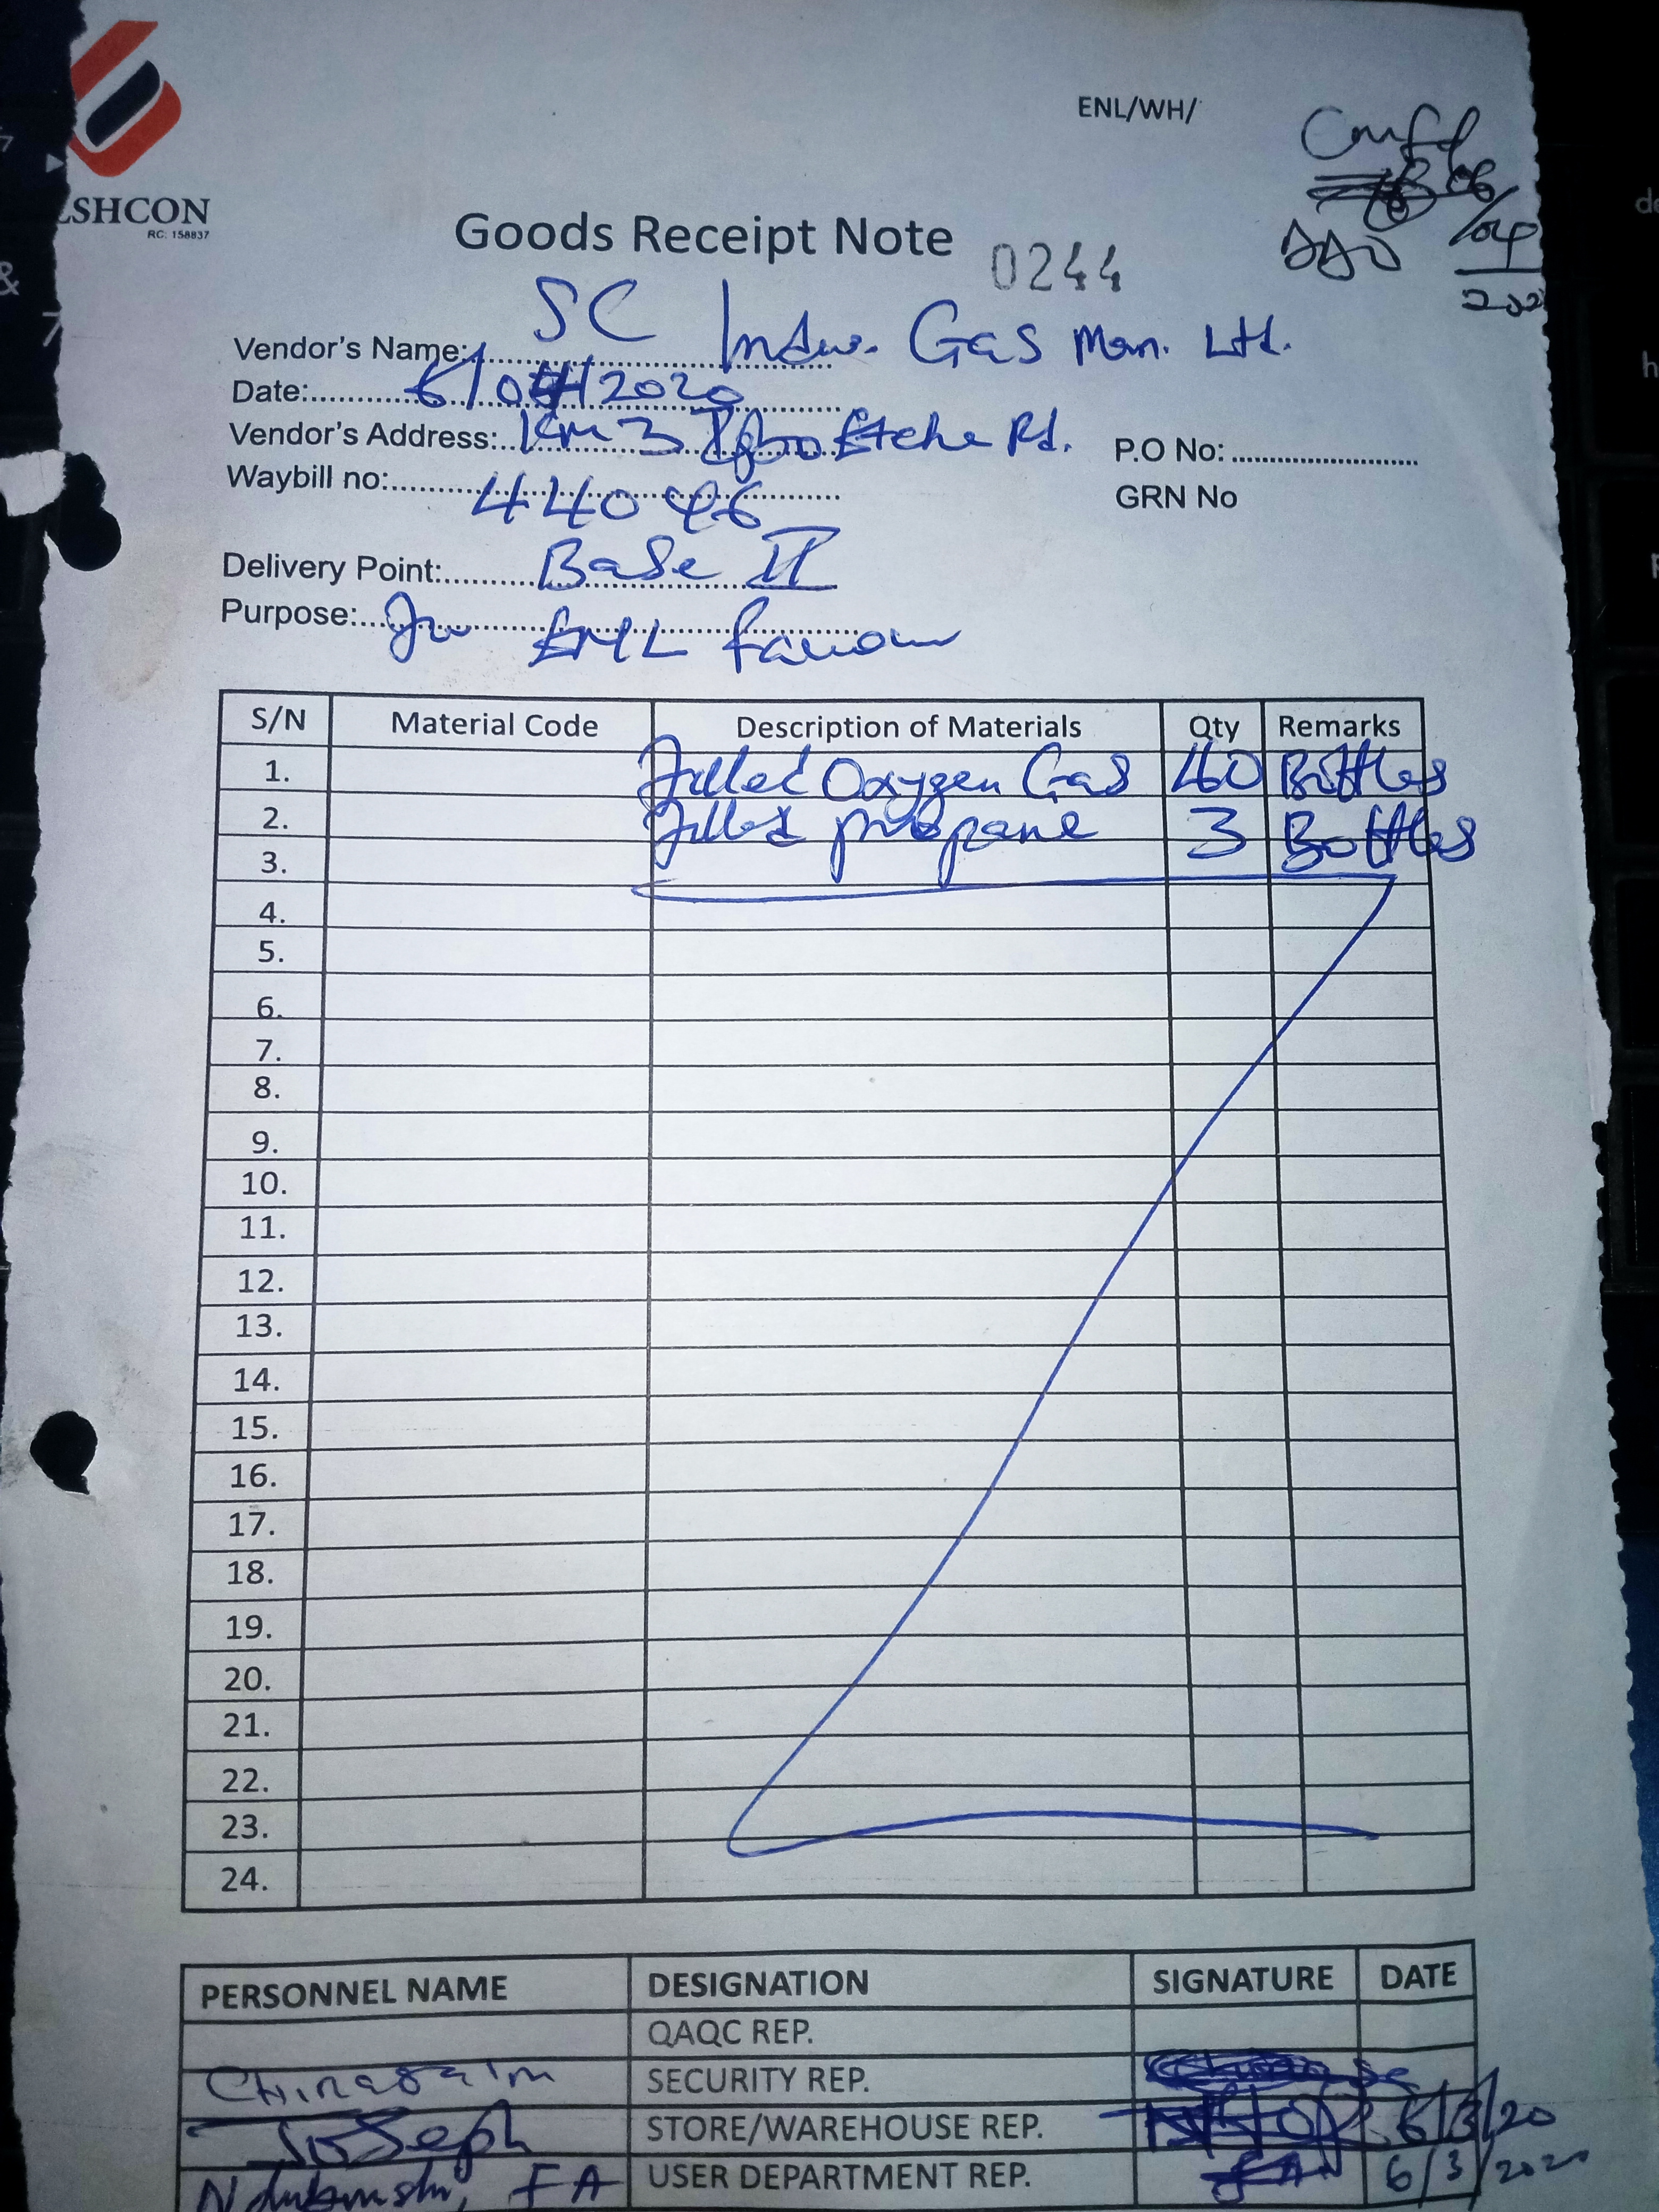 ENL/WH/
SHCON
RC: 158837
06/04
202
Goods Receipt Note 0244
Vendor's Name: SC Indus. Gas Man. Ltd.
Date: 6/04/2020
Vendor's Address: Km 3 Igbo Etche Rd.
P.O No:
Waybill no: 44096
GRN No
Delivery Point: Base II
Purpose:
S/N Material Code Description of Materials Qty Remarks
1. Filled Oxygen Gas 40 Bottles
2. Filled propane 3 Bottles
3.
4.
5.
6.
7.
8.
9.
10.
11.
12.
13.
14.
15.
16.
17.
18.
19.
20.
21.
22.
23.
24.
PERSONNEL NAME DESIGNATION SIGNATURE DATE
QAQC REP.
Chinagaim SECURITY REP.
Joseph STORE/WAREHOUSE REP. 6/3/20
FA USER DEPARTMENT REP. 6/3/2020